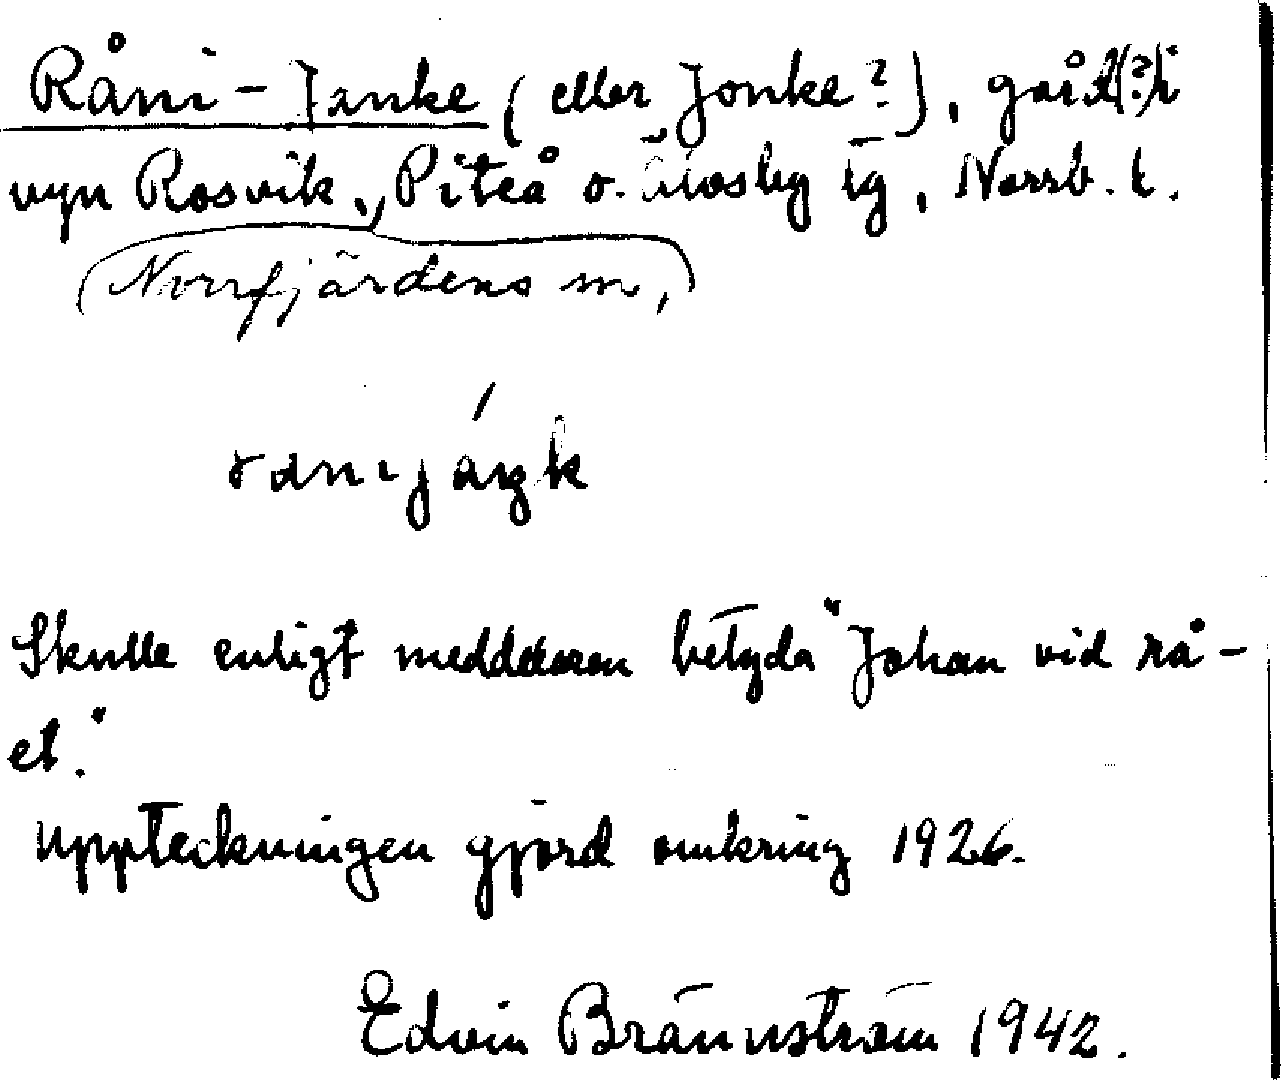 Råni - Janke (eller Jonke?), gård(?) i
byn Rosvik, Piteå o. Älvsby tg, Norrb. l.
(Norrfjärdens sn,)
Skulle enligt meddelaren betyda "Johan vid rå-
et."
Uppteckningen gjord omkring 1926.
Edvin Brännström 1942.